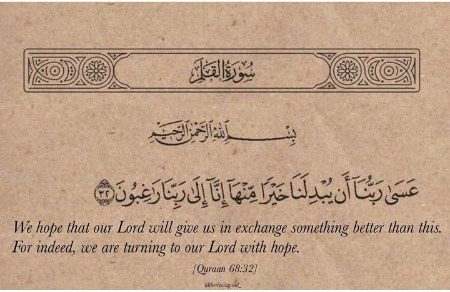 سُورَةُ القَلَمِ
بِسْمِ اللَّهِ الرَّحْمَٰنِ الرَّحِيمِ
عَسَىٰ رَبُّنَآ أَن يُبْدِلَنَا خَيْرًا مِّنْهَآ إِنَّآ إِلَىٰ رَبِّنَا رَٰغِبُونَ ٣٢
We hope that our Lord will give us in exchange something better than this.
For indeed, we are turning to our Lord with hope.
{Quraan 68:32}